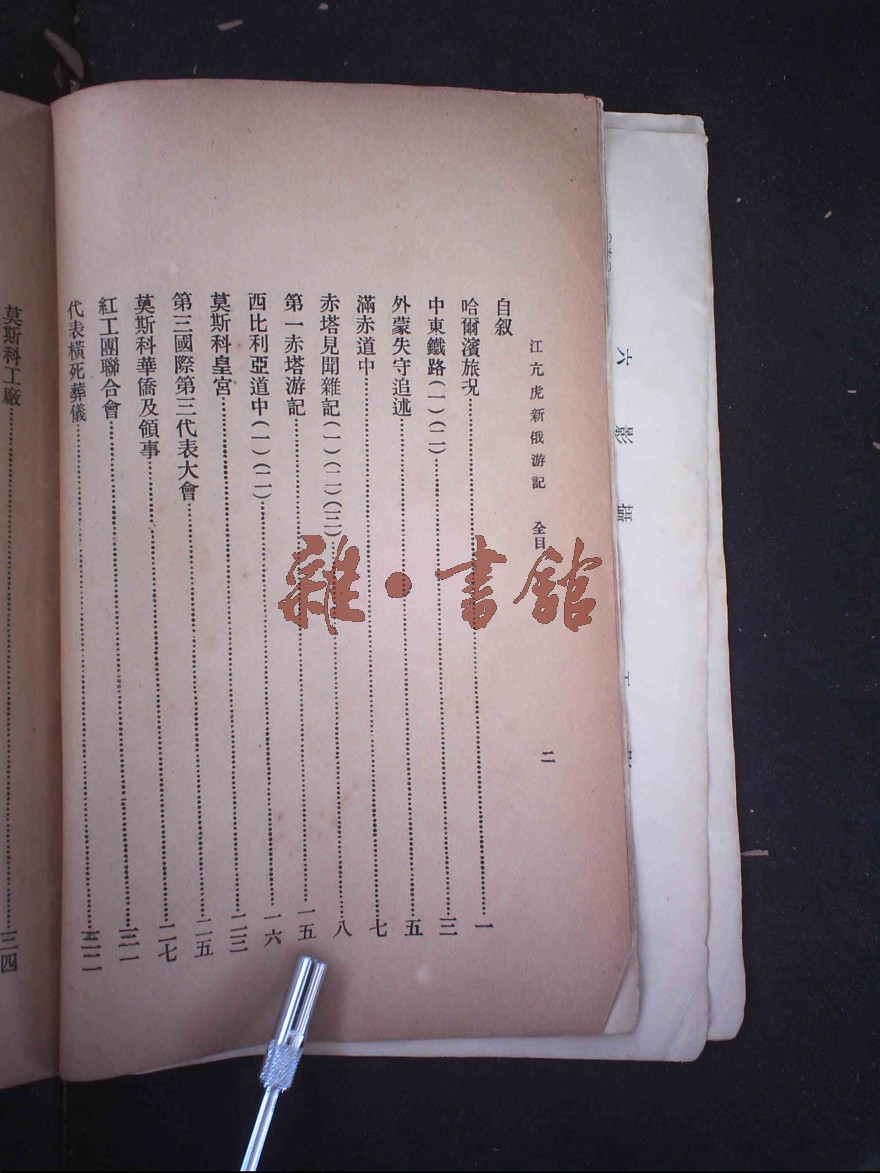 江亢虎新俄游記 全目 二
自叙
哈爾濱旅况 一
中東鐵路(一)(二) 三
外蒙失守追述 五
滿赤道中 七
赤塔見聞雜記(一)(二)(三) 八
第一赤塔游記 一五
西比利亞道中(一)(二) 一六
莫斯科皇宮 二三
第三國際第三代表大會 二五
莫斯科華僑及領事 二七
紅工團聯合會 三一
代表橫死葬儀 三二
莫斯科工廠 三四
雜·書館